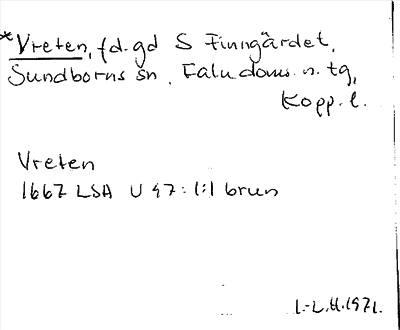 *Vreten, f.d. gd S Finngärdet,
Sundborns sn, Falu doms. n. tg,
Kopp. l.
Vreten
1667 LSA U 47:1:1 brun
I.-L.H. 1971.